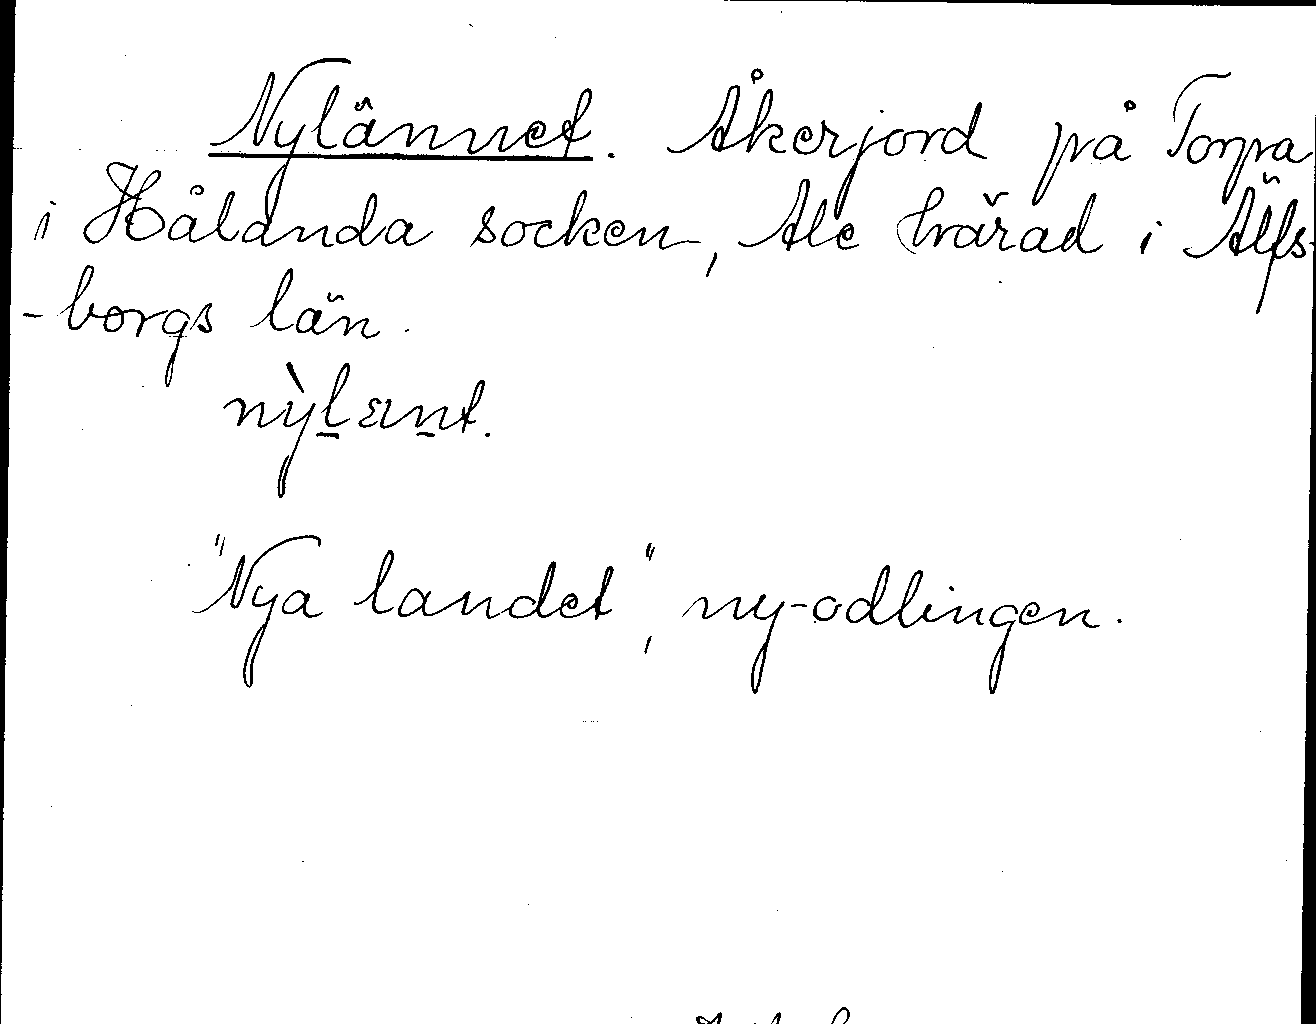 Nylännet. Åkerjord på Torpa
i Hålanda socken, Ale härad i Älfs-
-borgs län.
"Nya landet", ny-odlingen.